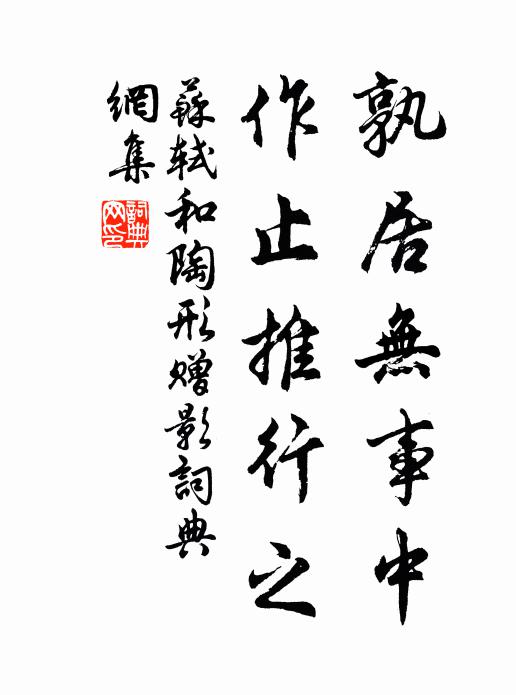 孰居無事中
作止推行之
蘇軾和陶形贈影詞典
網集
詞典
网印